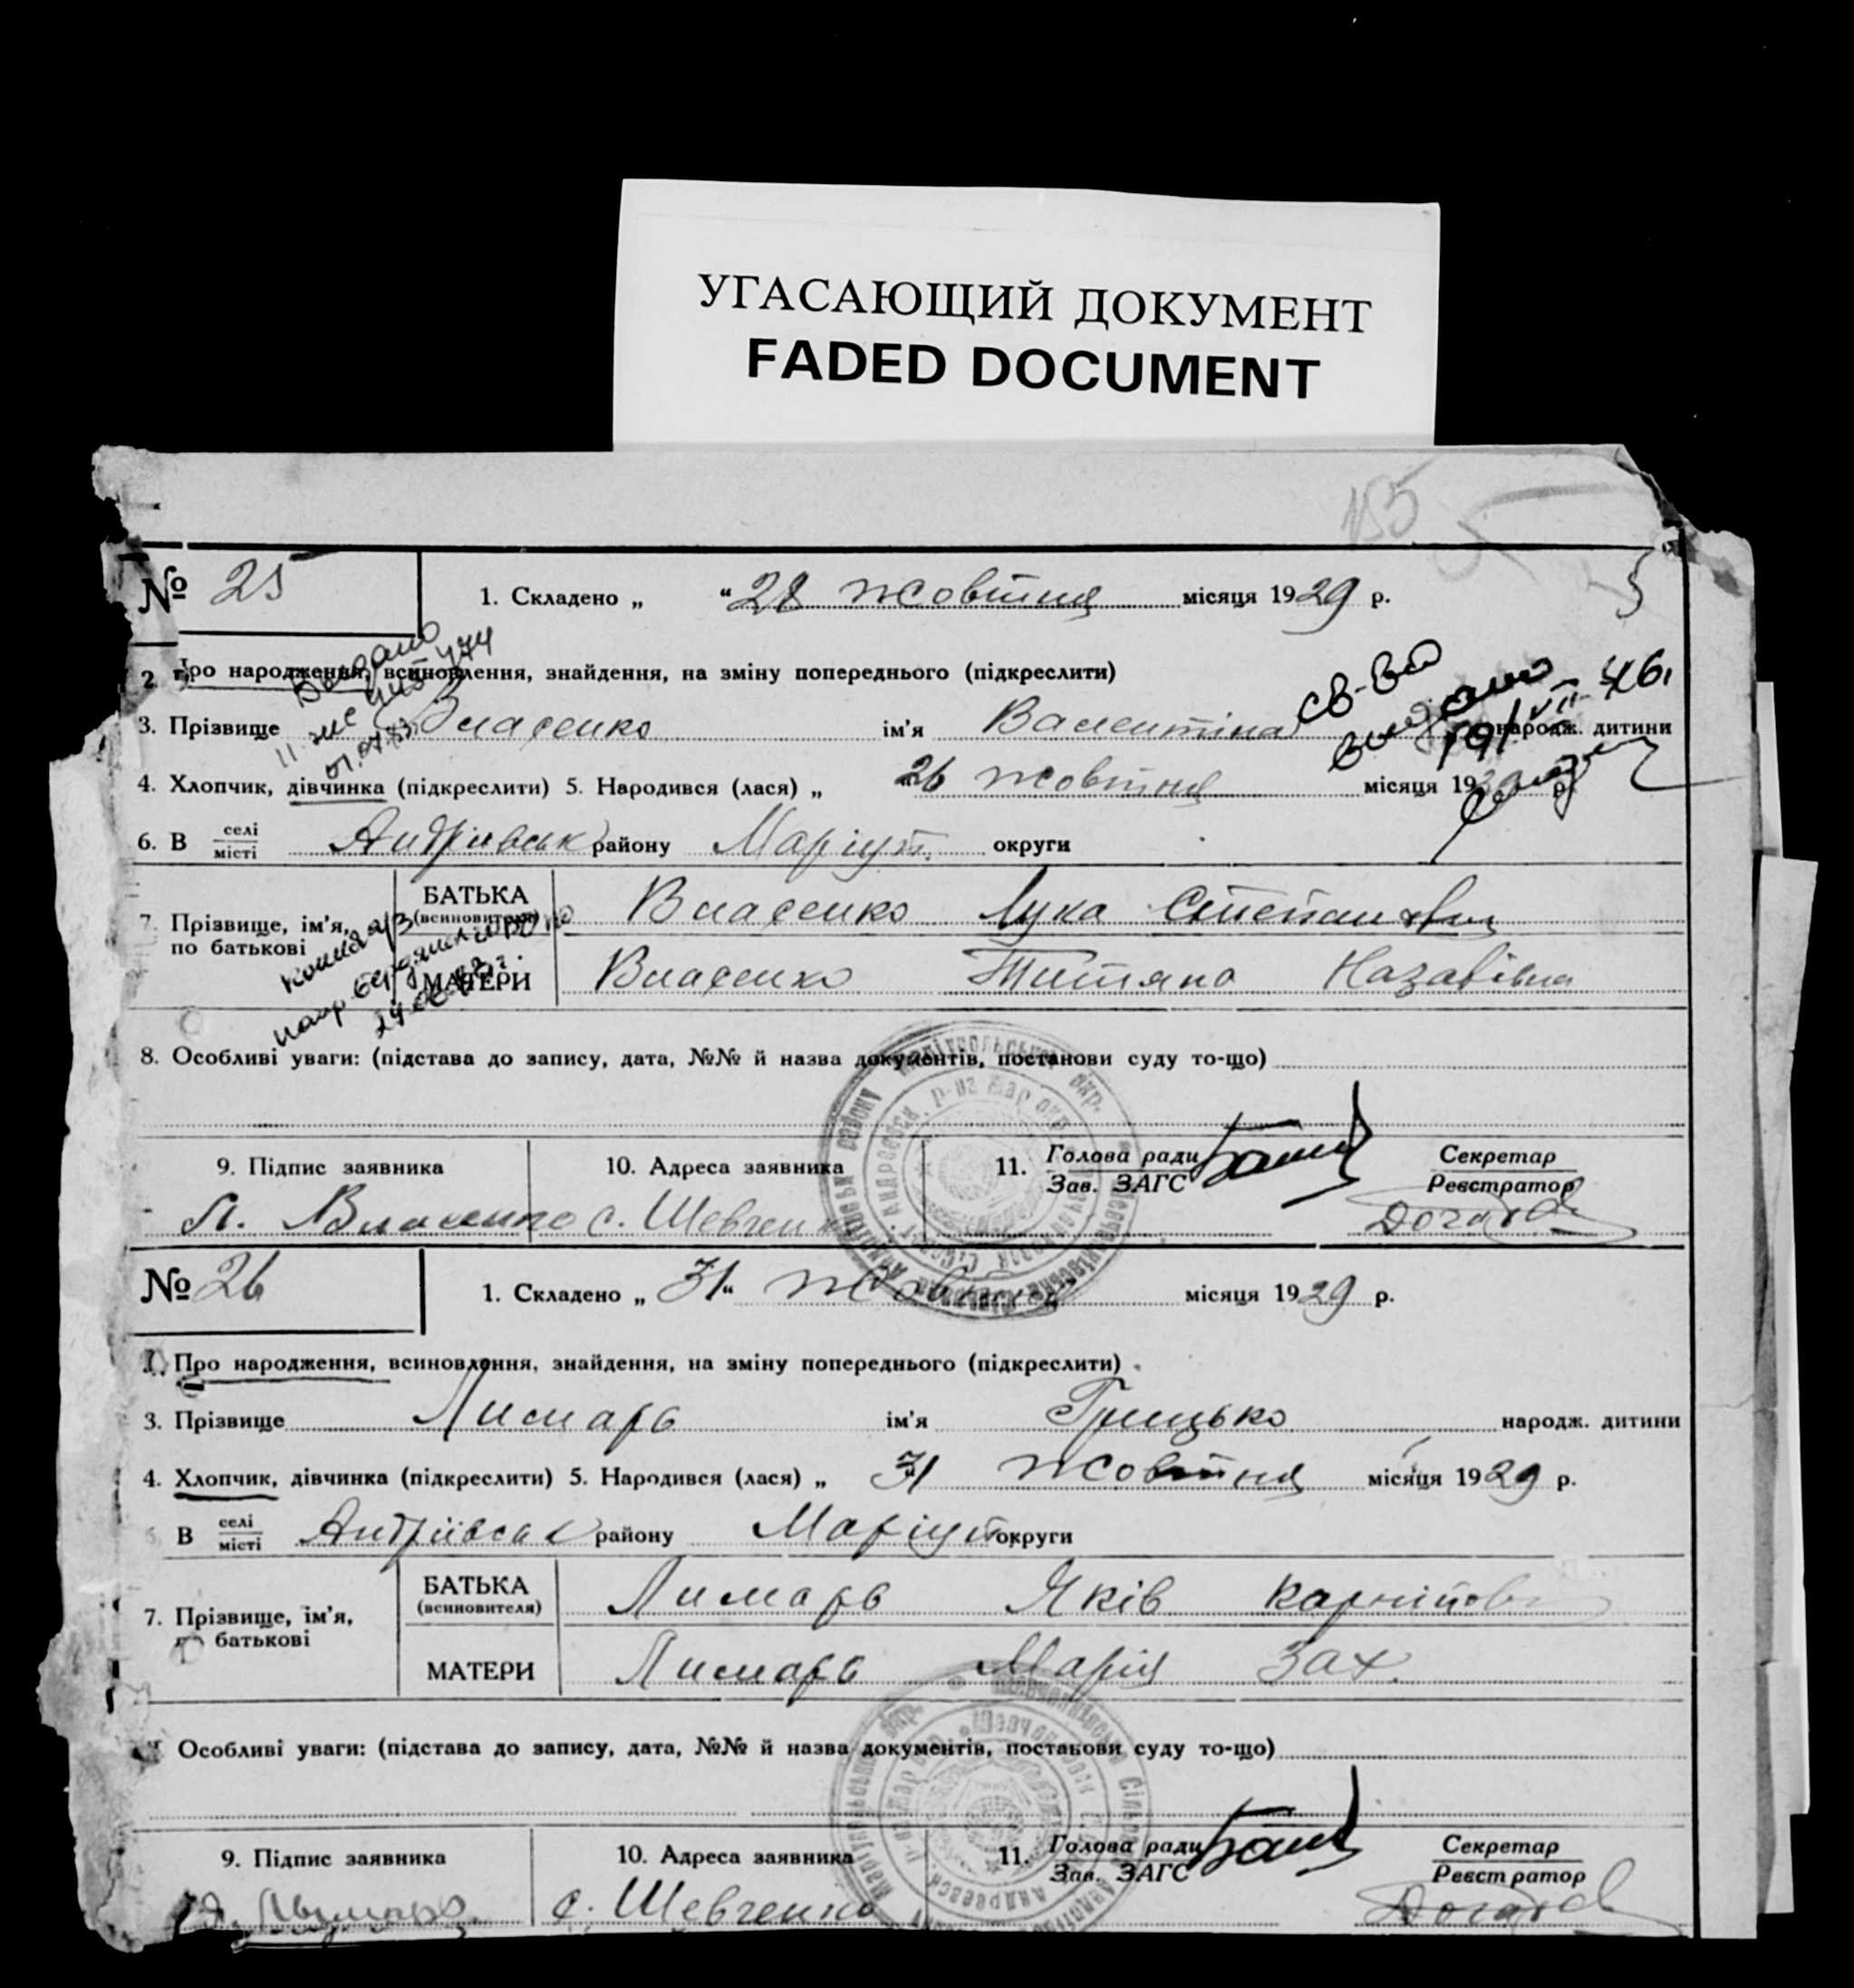 УГАСАЮЩИЙ ДОКУМЕНТ
FADED DOCUMENT
155
№ 25
1. Складено „ “ 28 жовтня місяця 1929 р.
2. Про народження, всиновлення, знайдення, на зміну попереднього (підкреслити)
3. Прізвище Власенко ім'я Валентіна народж. дитини
св-во
видано
VII-46
4. Хлопчик, дівчинка (підкреслити) 5. Народився (лася) „ 26 жовтня місяця 1929 р.
6. В селі місті Андрівськ району Маріуп. округи
7. Прізвище, ім'я, по батькові
БАТЬКА (всиновителя) Власенко Лука Степанович
МАТЕРИ Власенко Титяна Назарівна
8. Особливі уваги: (підстава до запису, дата, №№ й назва документів, постанови суду то-що)
9. Підпис заявника
10. Адреса заявника
11. Голова ради Зав. ЗАГС
Секретар Реєстратор
Л. Власенко с. Шевченко
№ 26
1. Складено „ 31 “ жовтня місяця 1929 р.
Про народження, всиновлення, знайдення, на зміну попереднього (підкреслити)
3. Прізвище Лимарь ім'я Грицько народж. дитини
4. Хлопчик, дівчинка (підкреслити) 5. Народився (лася) „ 31 жовтня місяця 1929 р.
В селі місті Андріївськ району Маріуп округи
7. Прізвище, ім'я, по батькові
БАТЬКА (всиновителя) Лимарь Яків Карпітович
МАТЕРИ Лимарь Марія Зах.
Особливі уваги: (підстава до запису, дата, №№ й назва документів, постанови суду то-що)
9. Підпис заявника
10. Адреса заявника
11. Голова ради Зав. ЗАГС
Секретар Реєстратор
с. Шевченко